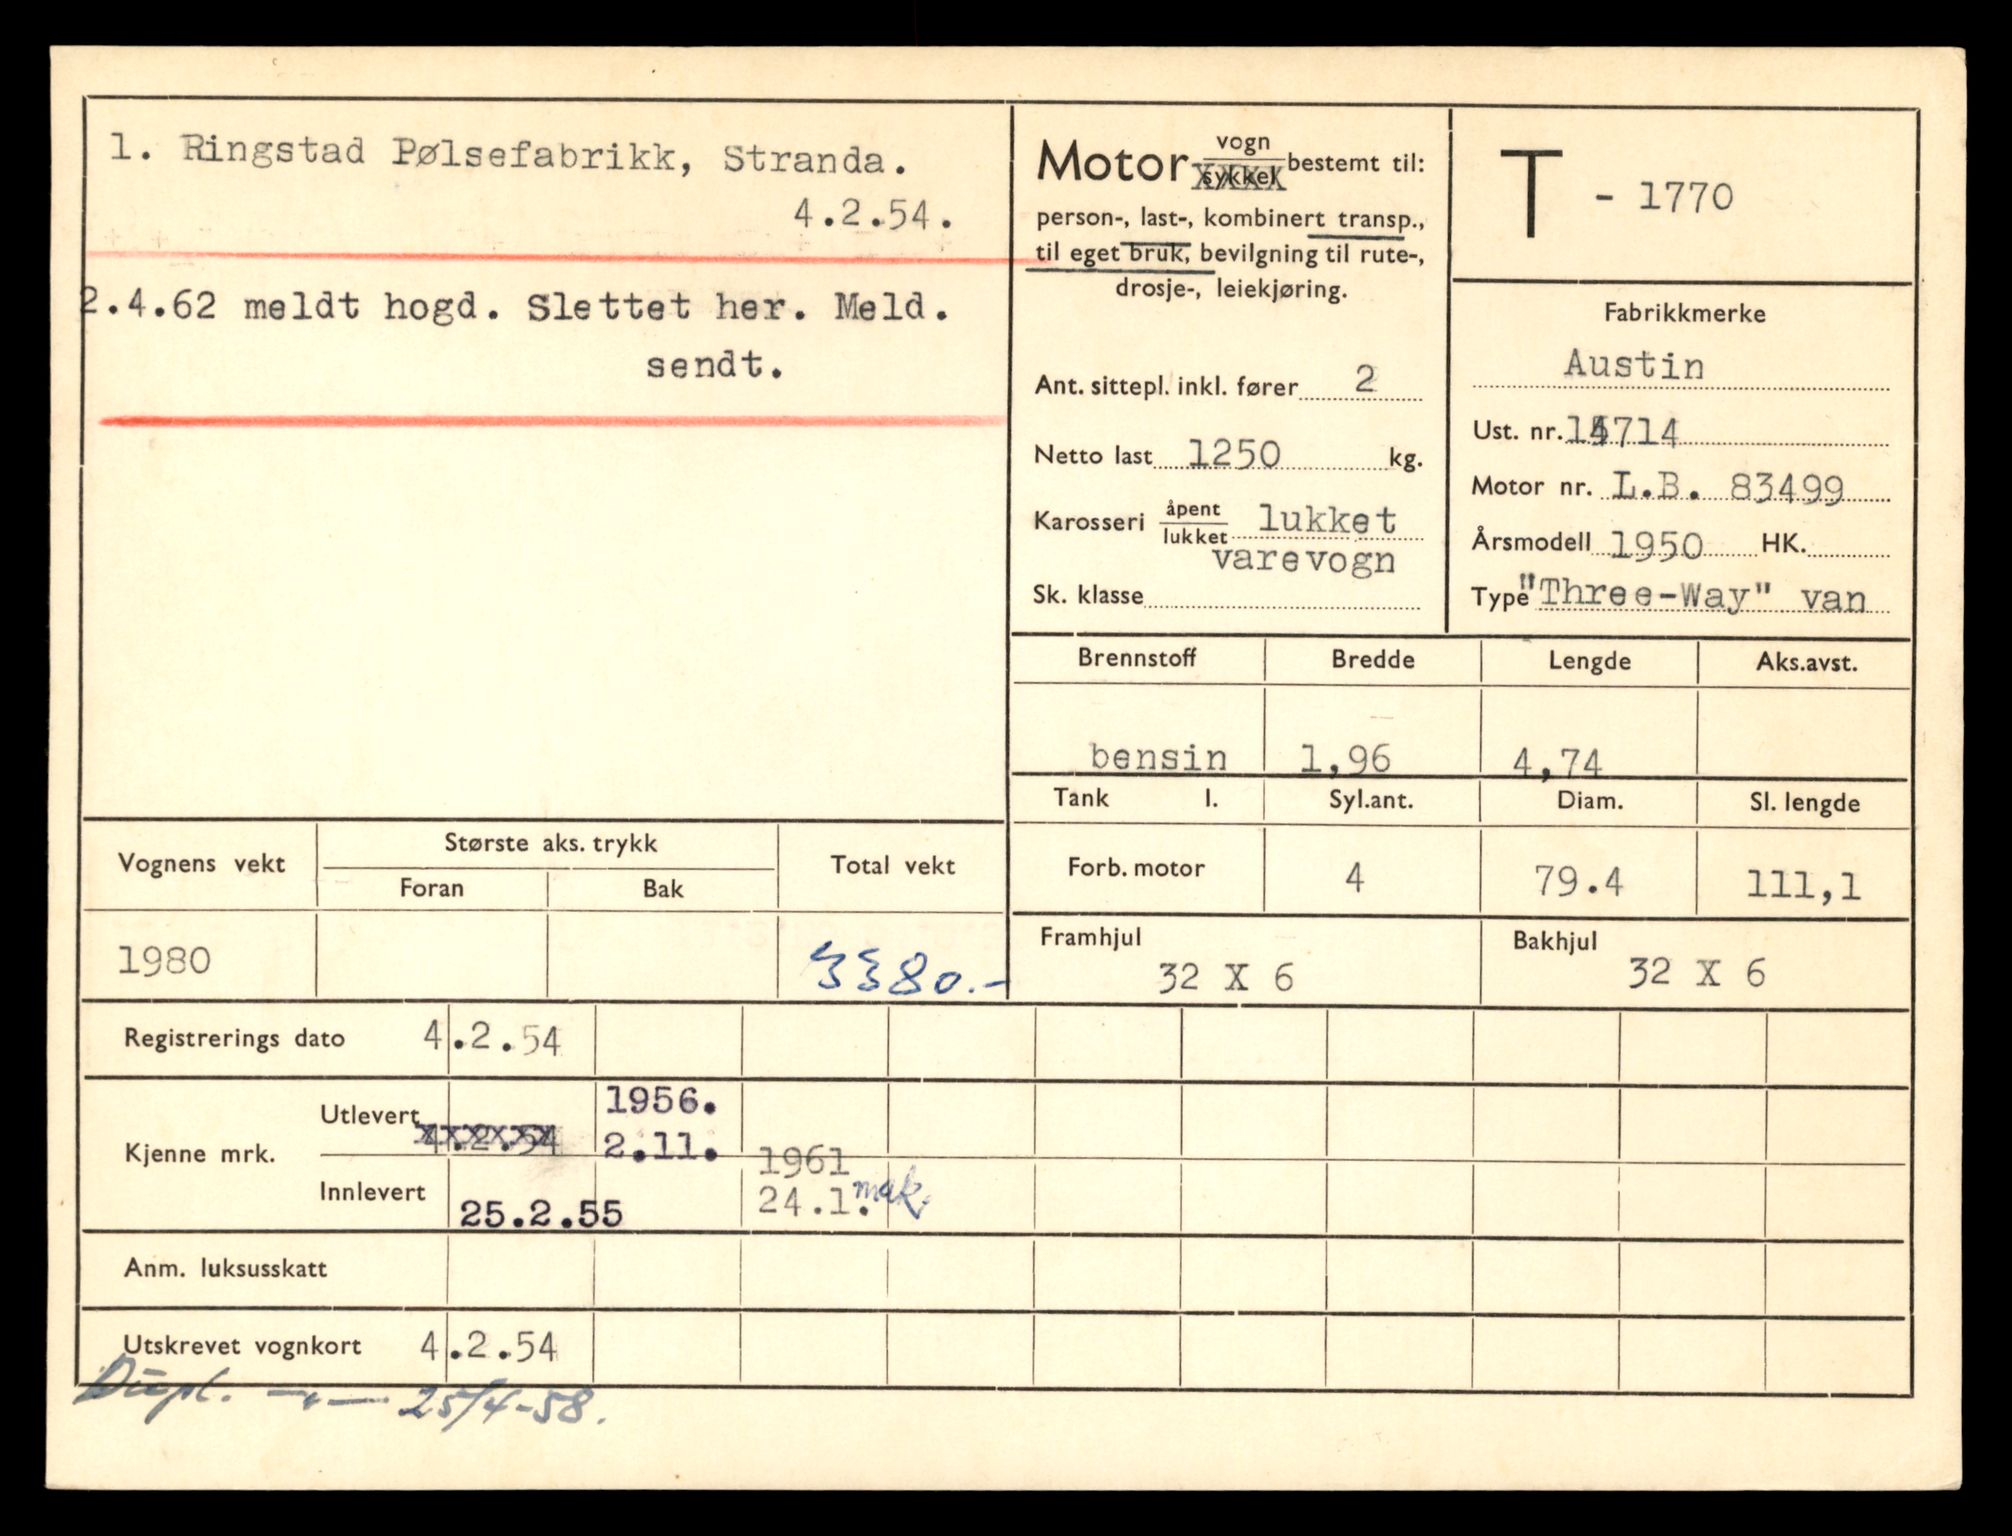 1. Ringstad Pølsefabrikk, Stranda.
4.2.54.
2.4.62 meldt hogd. Slettet her. Meld.
sendt.
Motor vogn sykkel bestemt til:
person-, last-, kombinert transp.,
til eget bruk, bevilgning til rute-,
drosje-, leiekjøring.
Ant. sittepl. inkl. fører 2
Netto last 1250 kg.
Karosseri åpent lukket lukket
varevogn
Sk. klasse
T - 1770
Fabrikkmerke
Austin
Ust. nr.
Motor nr. L.B. 83499
Årsmodell 1950 HK.
Type "Three-Way" van
Brennstoff Bredde Lengde Aks.avst.
bensin 1,96 4,74
Tank l. Syl.ant. Diam. Sl. lengde
Forb. motor 4 79.4 111,1
Framhjul Bakhjul
32 X 6 32 X 6
Vognens vekt Største aks. trykk Total vekt
Foran Bak
1980 3380.-
Registrerings dato 4.2.54
Kjenne mrk. Utlevert 4.2.54 1956.
2.11.
Innlevert 25.2.55 1961
24.1. mak.
Anm. luksusskatt
Utskrevet vognkort 4.2.54
Dupl. —"— 25/4-58.